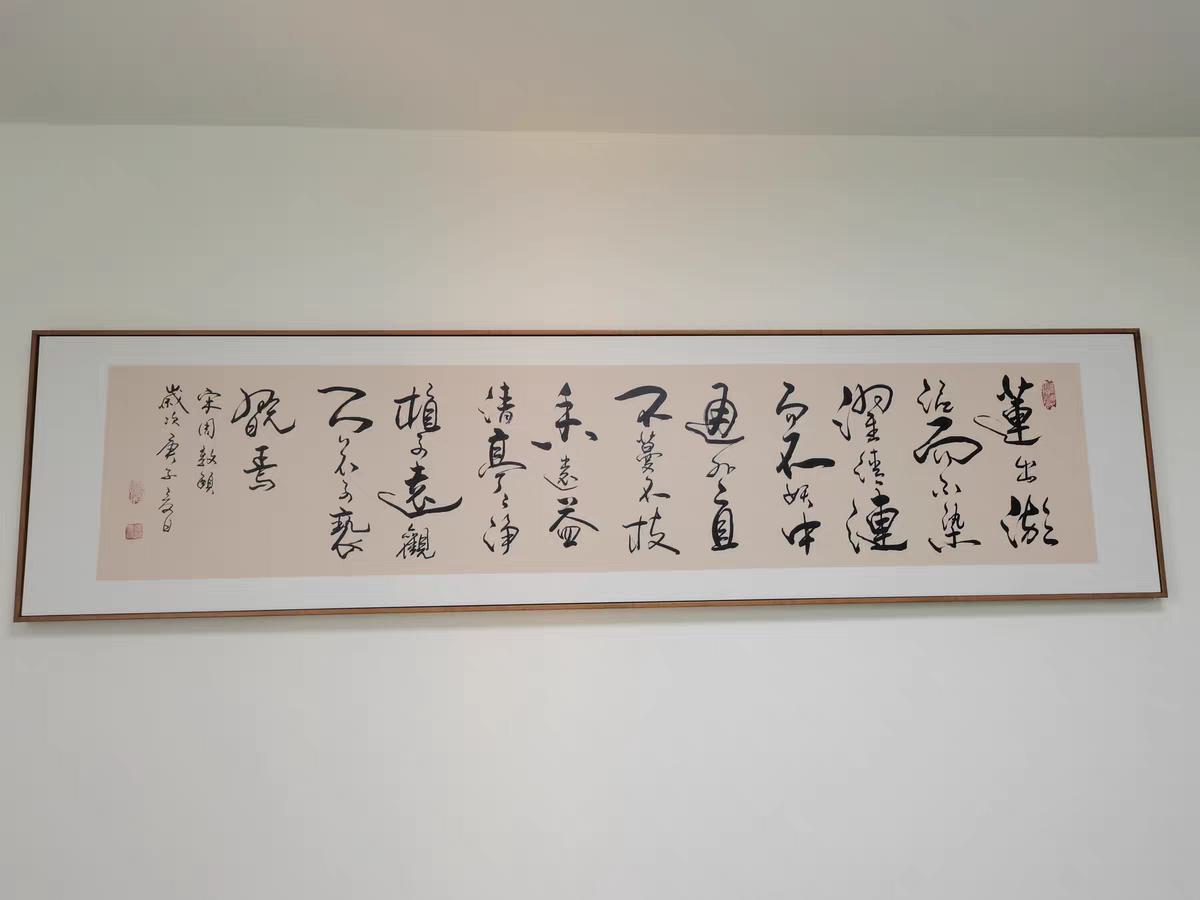 蓮出淤
泥而不染
濯清漣
而不妖中
通外直
不蔓不枝
香遠益
清亭亭淨
植可遠觀
而不可褻
翫焉
宋周敦頤
歲次庚子夏日